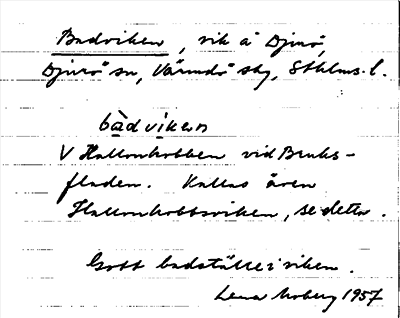 Badviken, vik å Djurö,
Djurö sn, Värmdö skg, Sthlms l.
bàdviken
V Hallonkobben vid Bruks-
fladen. Kallas även
Hallonkobbsviken, se detta.
Gott badställe i viken.
Lena Moberg 1957